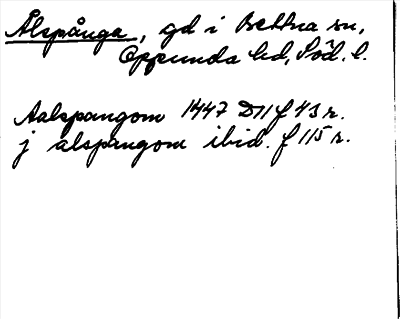 Ålspånga, gd i Bettna sn,
Oppunda hd, Söd. l.
Aalspangom 1447 D11 f 43 r.
j alspangom ibid. f 115 r.